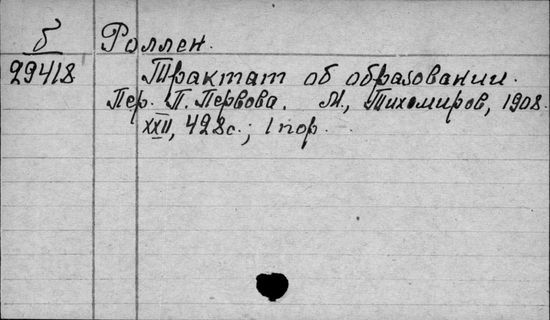 б Роллен.
29418 Трактат об образовании.
Пер. П. Первова. М., Тихомиров, 1908.
XXII, 428с.; 1 пор.